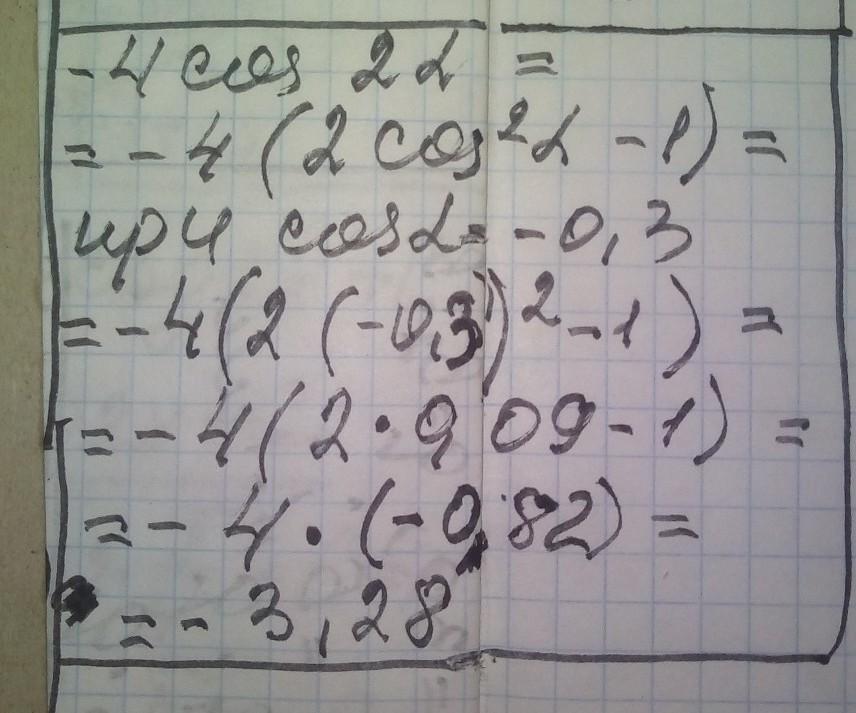 -4 cos 2α =
= -4 (2 cos²α - 1) =
при cosα = -0,3
= -4(2 (-0,3)² - 1) =
= -4(2·0,09 - 1) =
= -4·(-0,82) =
= -3,28